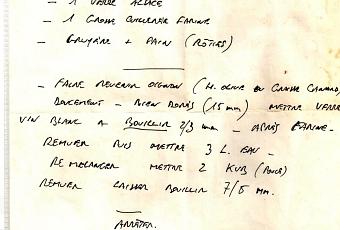 - 1 VERRE ALSACE
- 1 GROSSE CUILLERE FARINE
- GRUYÈRE + PAIN (RÔTIES)
- FAIRE REVENIR OIGNON (H. OLIVE OU GRAISSE CANARD)
DOUCEMENT - BIEN DORÉS (15 mm) METTRE VERRE
VIN BLANC A BOUILLIR 2/3 mm - APRÈS FARINE -
REMUER PUIS METTRE 3 L. EAU -
REMELANGER METTRE 2 KUB (POULE)
REMUER LAISSER BOUILLIR 7/8 mm.
ARRÊTER.